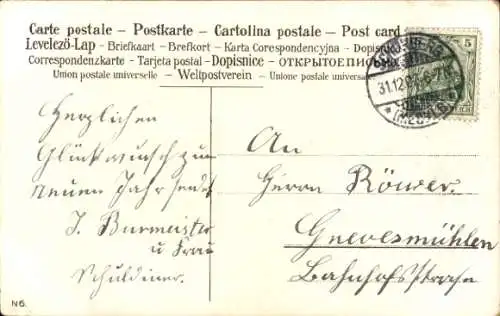 Carte postale – Postkarte – Cartolina postale – Post card
Levelező-Lap – Briefkaart – Brefkort – Karta Corespondencyjna – Dopisnic
Correspondenzkarte – Tarjeta postal – Dopisnice – ОТКРЫТОЕ ПИСЬМО
Union postale universelle – Weltpostverein – Unione postale universale
5
31.12.
(MECKLB)
Herzlichen
Glückwunsch zum
neuen Jahr sendet
J. Burmeister
u Frau
Schuldiener.
An
Herrn Röwer.
Grevesmühlen
Bahnhofsstraße
N6.